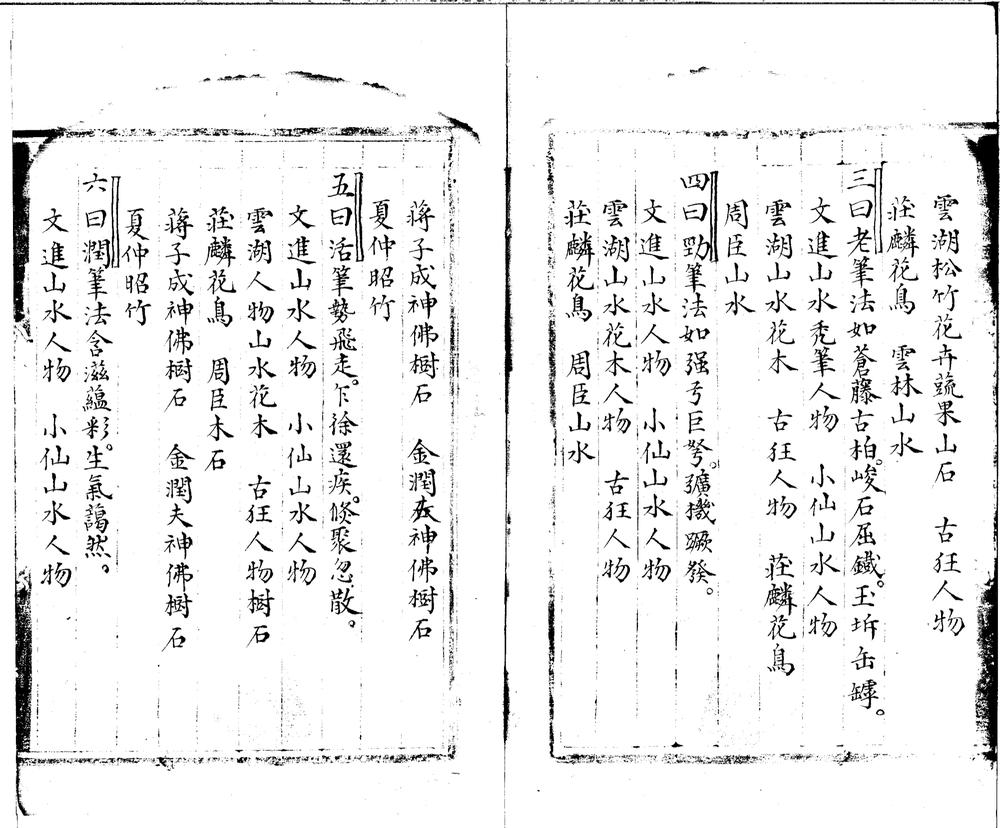 雲湖松竹花卉蔬果山石　古狂人物
荘麟花鳥　雲林山水
三曰老筆法如蒼藤古柏。峻石屈鐵。玉坼缶罅。
文進山水禿筆人物　小仙山水人物
雲湖山水花木　古狂人物　荘麟花鳥
周臣山水
四曰勁筆法如强弓巨弩。彍機蹶發。
文進山水人物　小仙山水人物
雲湖山水花木人物　古狂人物
荘麟花鳥　周臣山水
蔣子成神佛樹石　金潤夫神佛樹石
夏仲昭竹
五曰活筆勢飛走。乍徐還疾。倐聚忽散。
文進山水人物　小仙山水人物
雲湖人物山水花木　古狂人物樹石
荘麟花鳥　周臣木石
蔣子成神佛樹石　金潤夫神佛樹石
夏仲昭竹
六曰潤筆法含滋蘊彩。生氣藹然。
文進山水人物　小仙山水人物